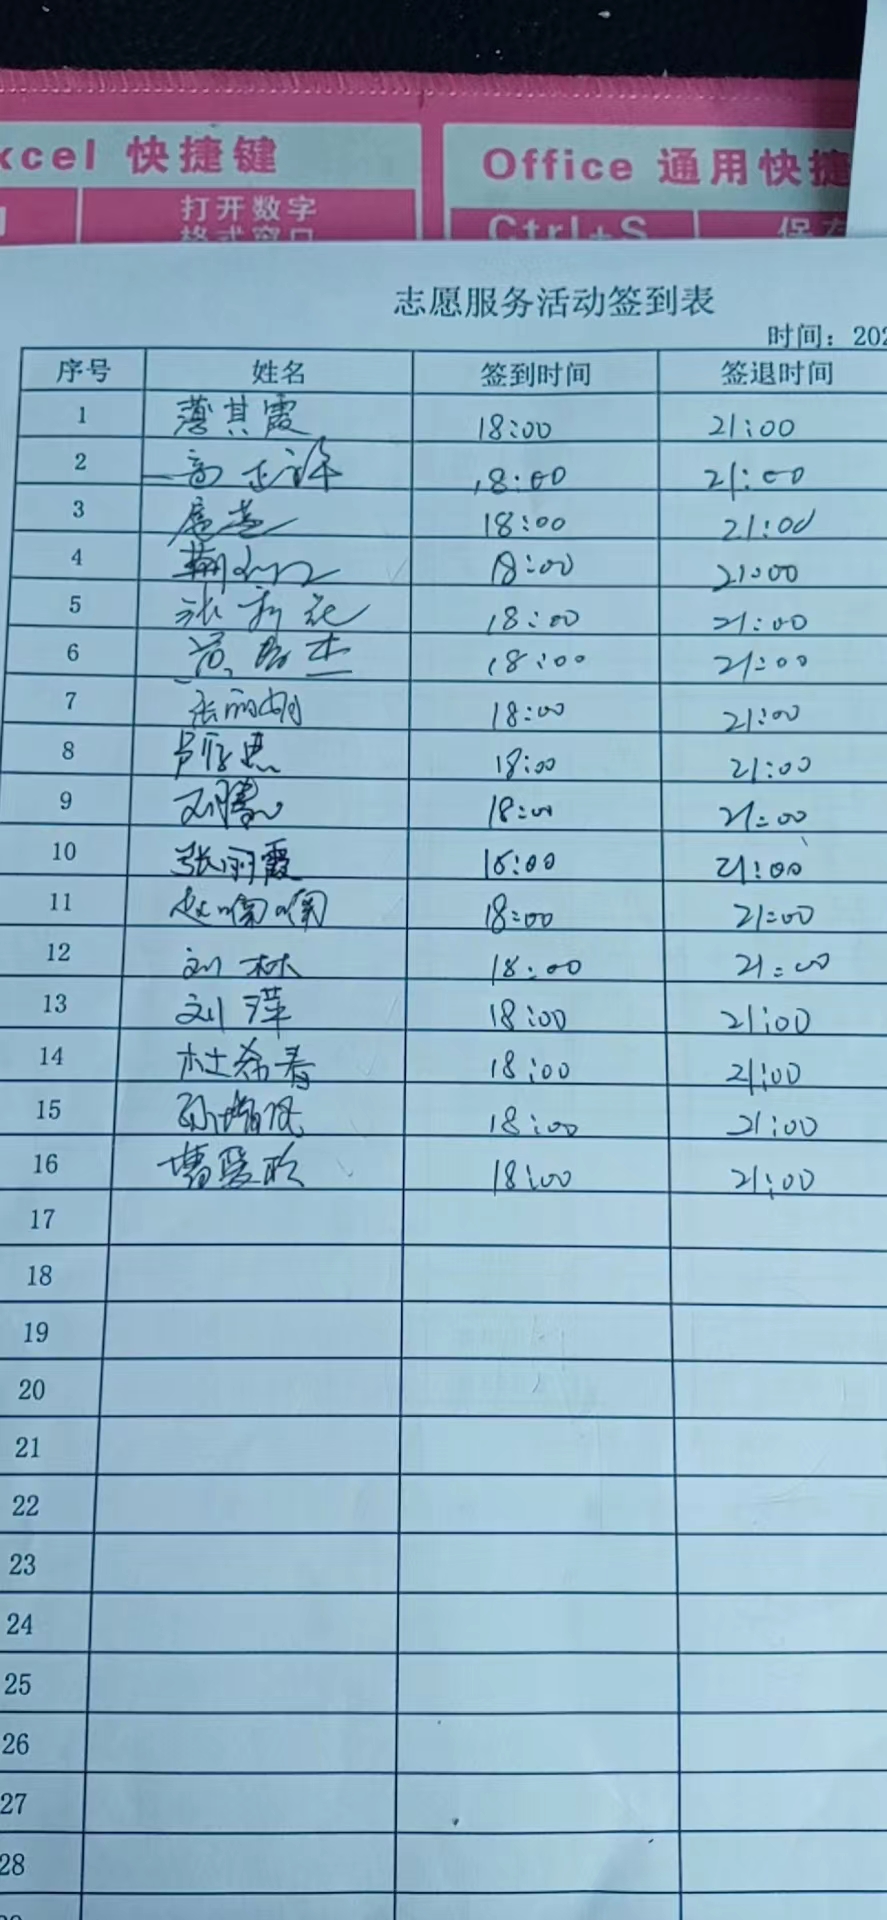 xcel 快捷键
Office 通用快捷
打开数字
格式窗口
Ctrl+S 保存
志愿服务活动签到表
时间：202
序号 姓名 签到时间 签退时间
1 薄其霞 18:00 21:00
2 18:00 21:00
3 18:00 21:00
4 18:00 21:00
5 张新花 18:00 21:00
6 18:00 21:00
7 张丽娟 18:00 21:00
8 18:00 21:00
9 刘腾 18:00 21:00
10 张丽霞 18:00 21:00
11 18:00 21:00
12 刘林 18:00 21:00
13 刘萍 18:00 21:00
14 杜希春 18:00 21:00
15 18:00 21:00
16 18:00 21:00
17
18
19
20
21
22
23
24
25
26
27
28